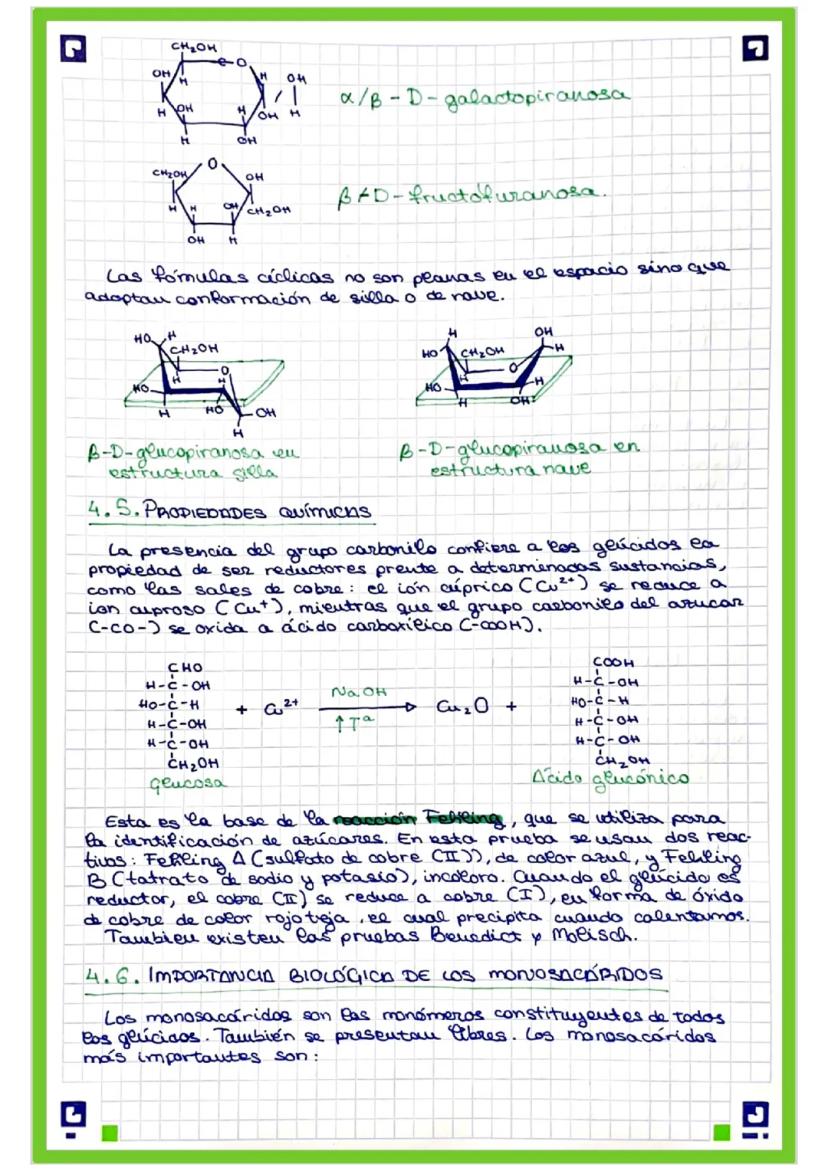 CH₂OH
OH H O H OH
H OH H OH H
H OH
α/β - D - galactopiranosa
CH₂OH O OH
H H OH CH₂OH
OH H
β-D-fructofuranosa.
Las fórmulas cíclicas no son planas en el espacio sino que
adoptan conformación de silla o de nave.
HO H
CH₂OH
O
HO H H
H HO OH
H
H OH
HO CH₂OH H
O
HO H H
H OH
β-D-glucopiranosa en
estructura silla
β-D-glucopiranosa en
estructura nave
4.5. PROPIEDADES QUÍMICAS
La presencia del grupo carbonilo confiere a los glúcidos la
propiedad de ser reductores frente a determinadas sustancias,
como las sales de cobre: el ión cúprico (Cu²⁺) se reduce a
ion cuproso (Cu⁺), mientras que el grupo carbonilo del azucar
(-CO-) se oxida a ácido carboxílico (-COOH).
CHO
H-C-OH
HO-C-H
H-C-OH
H-C-OH
CH₂OH
glucosa
+ Cu²⁺
NaOH
↑Tª
Cu₂O +
COOH
H-C-OH
HO-C-H
H-C-OH
H-C-OH
CH₂OH
Ácido glucónico
Esta es la base de la reacción Fehling, que se utiliza para
la identificación de azúcares. En esta prueba se usan dos reac-
tivos: Fehling A (sulfato de cobre (II)), de color azul, y Fehling
B (tatrato de sodio y potasio), incoloro. Cuando el glúcido es
reductor, el cobre (II) se reduce a cobre (I), en forma de óxido
de cobre de color rojo teja, el cual precipita cuando calentamos.
Tambien existen las pruebas Benedict y Molisch.
4.6. IMPORTANCIA BIOLÓGICA DE LOS MONOSACÁRIDOS
Los monosacáridos son los monómeros constituyentes de todos
los glúcidos. También se presentan libres. Los monosacáridos
más importantes son: